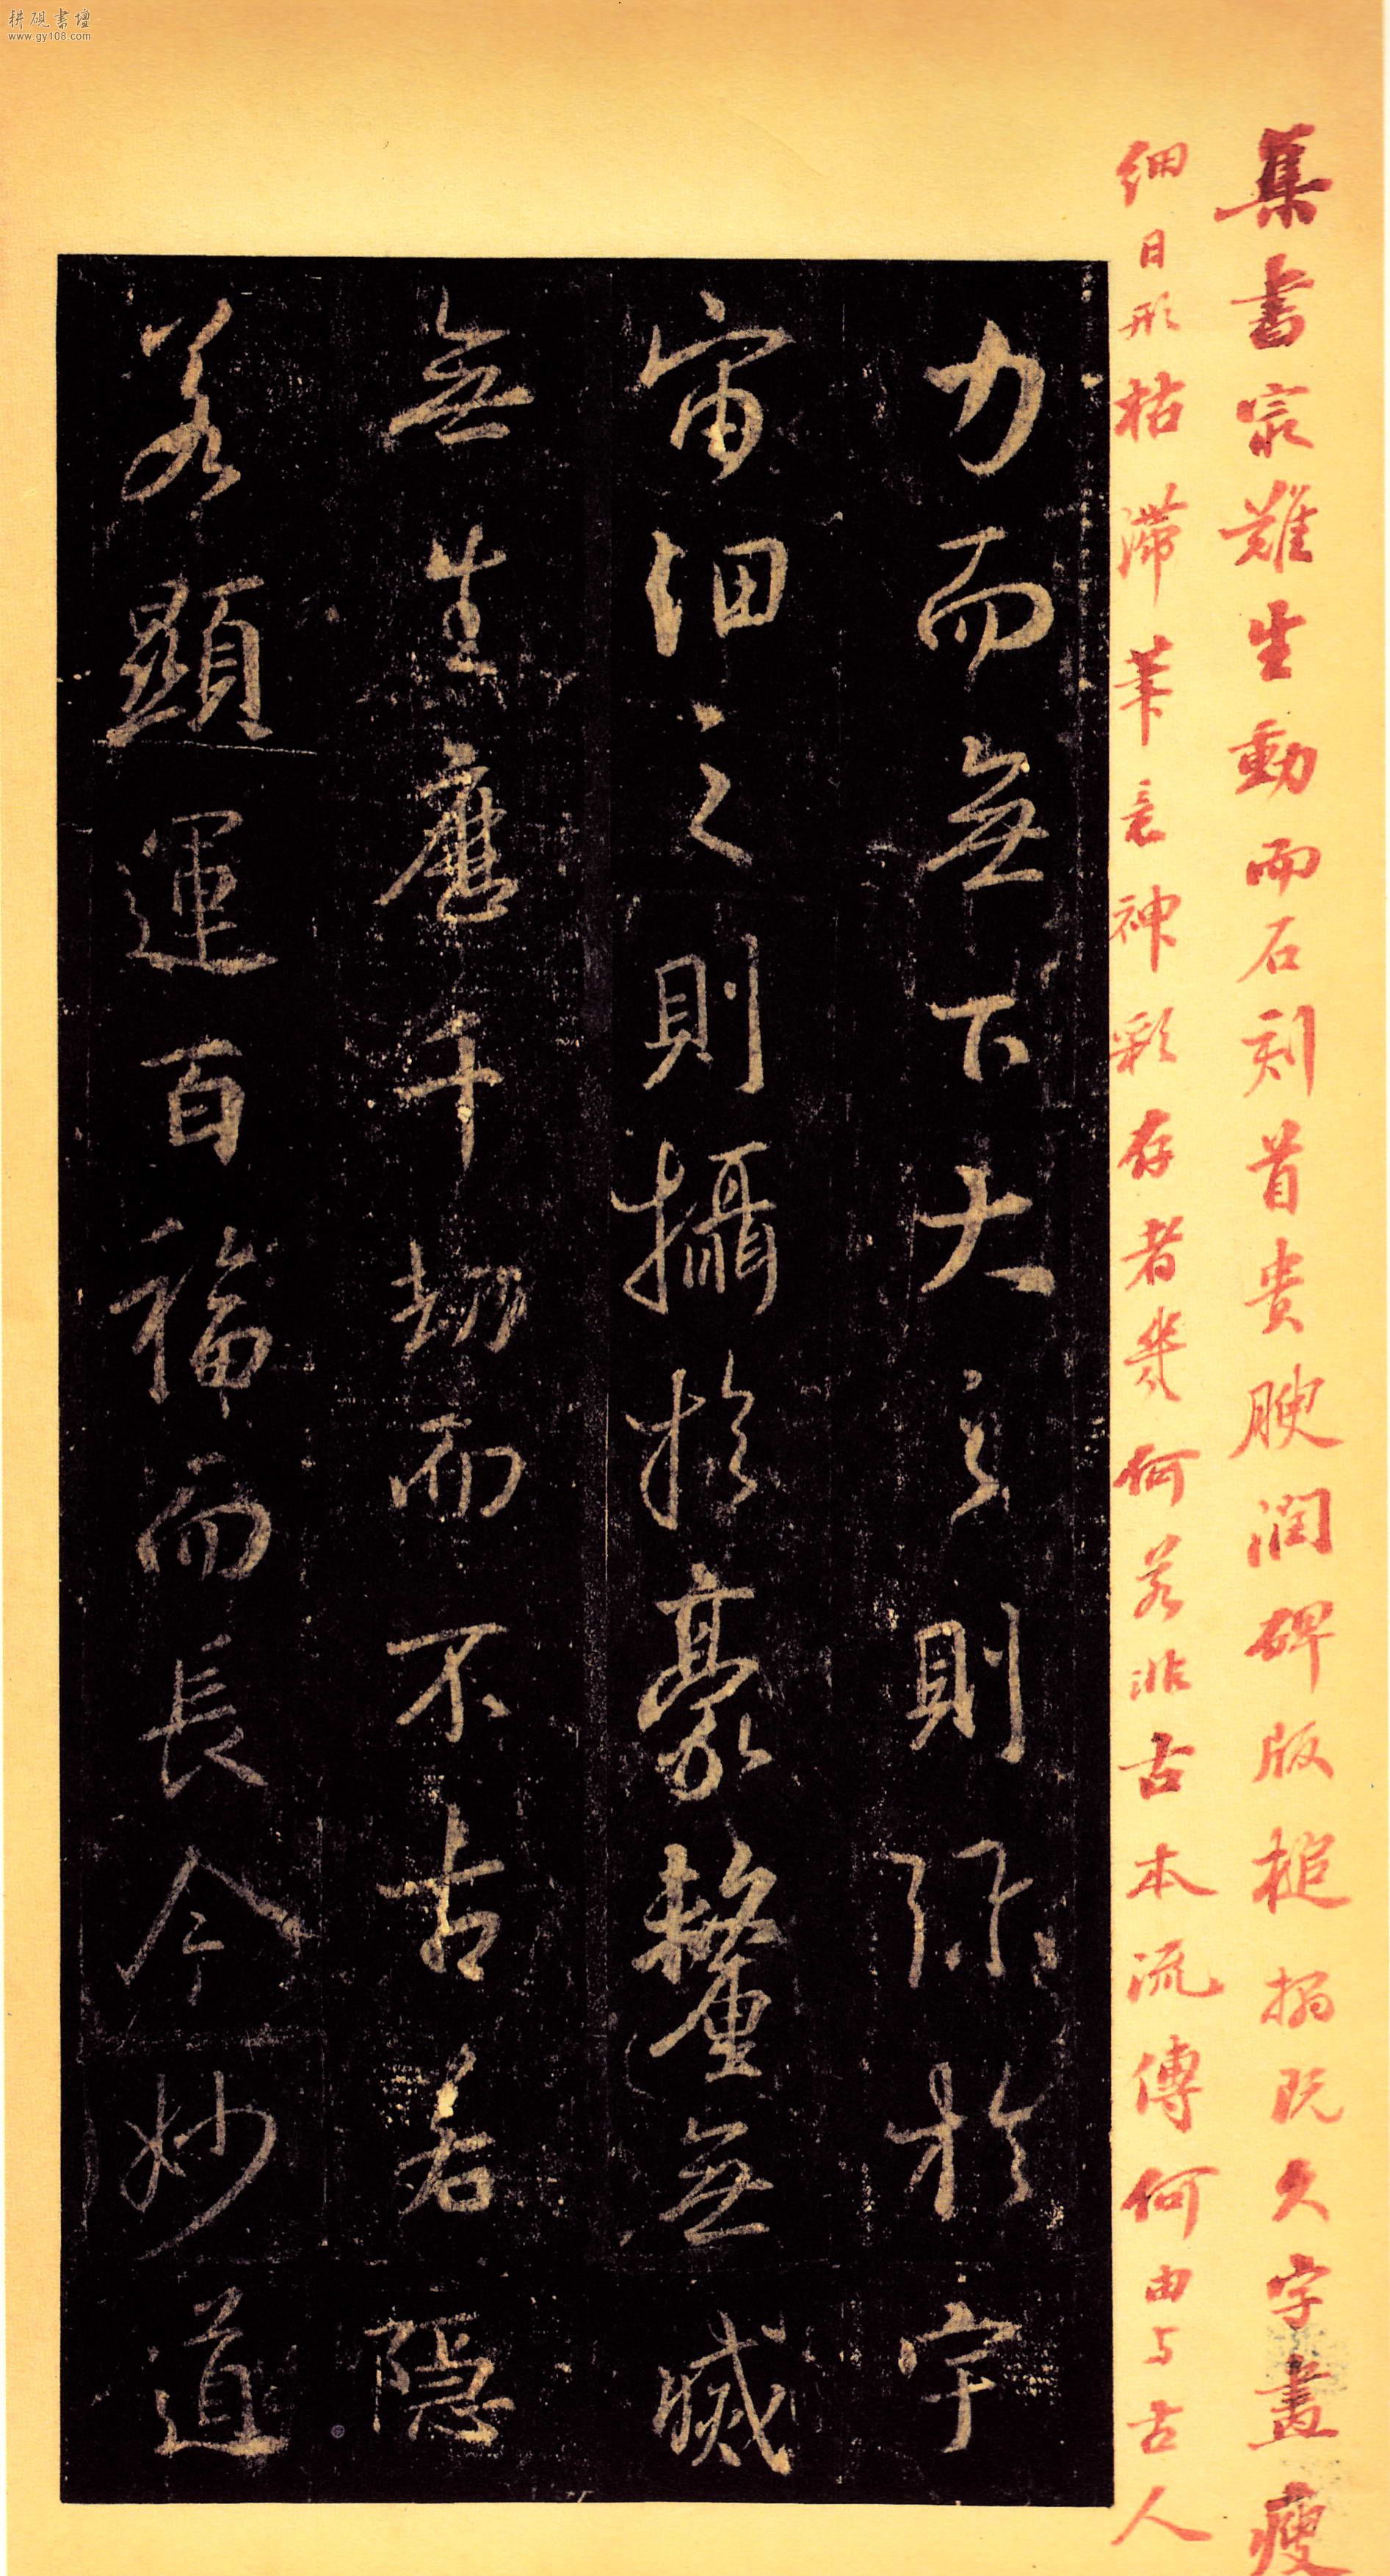 耕硯書壇
www.gy108.com
集書家難生動而石刻首貴腴潤碑版槌搨既久字畫瘦
細日形枯滞筆意神彩存者幾何若非古本流傳何由与古人
力而無下大之則弥於宇
宙細之則攝於豪釐無滅
無生歷千劫而不古若隱
若顯運百福而長今妙道